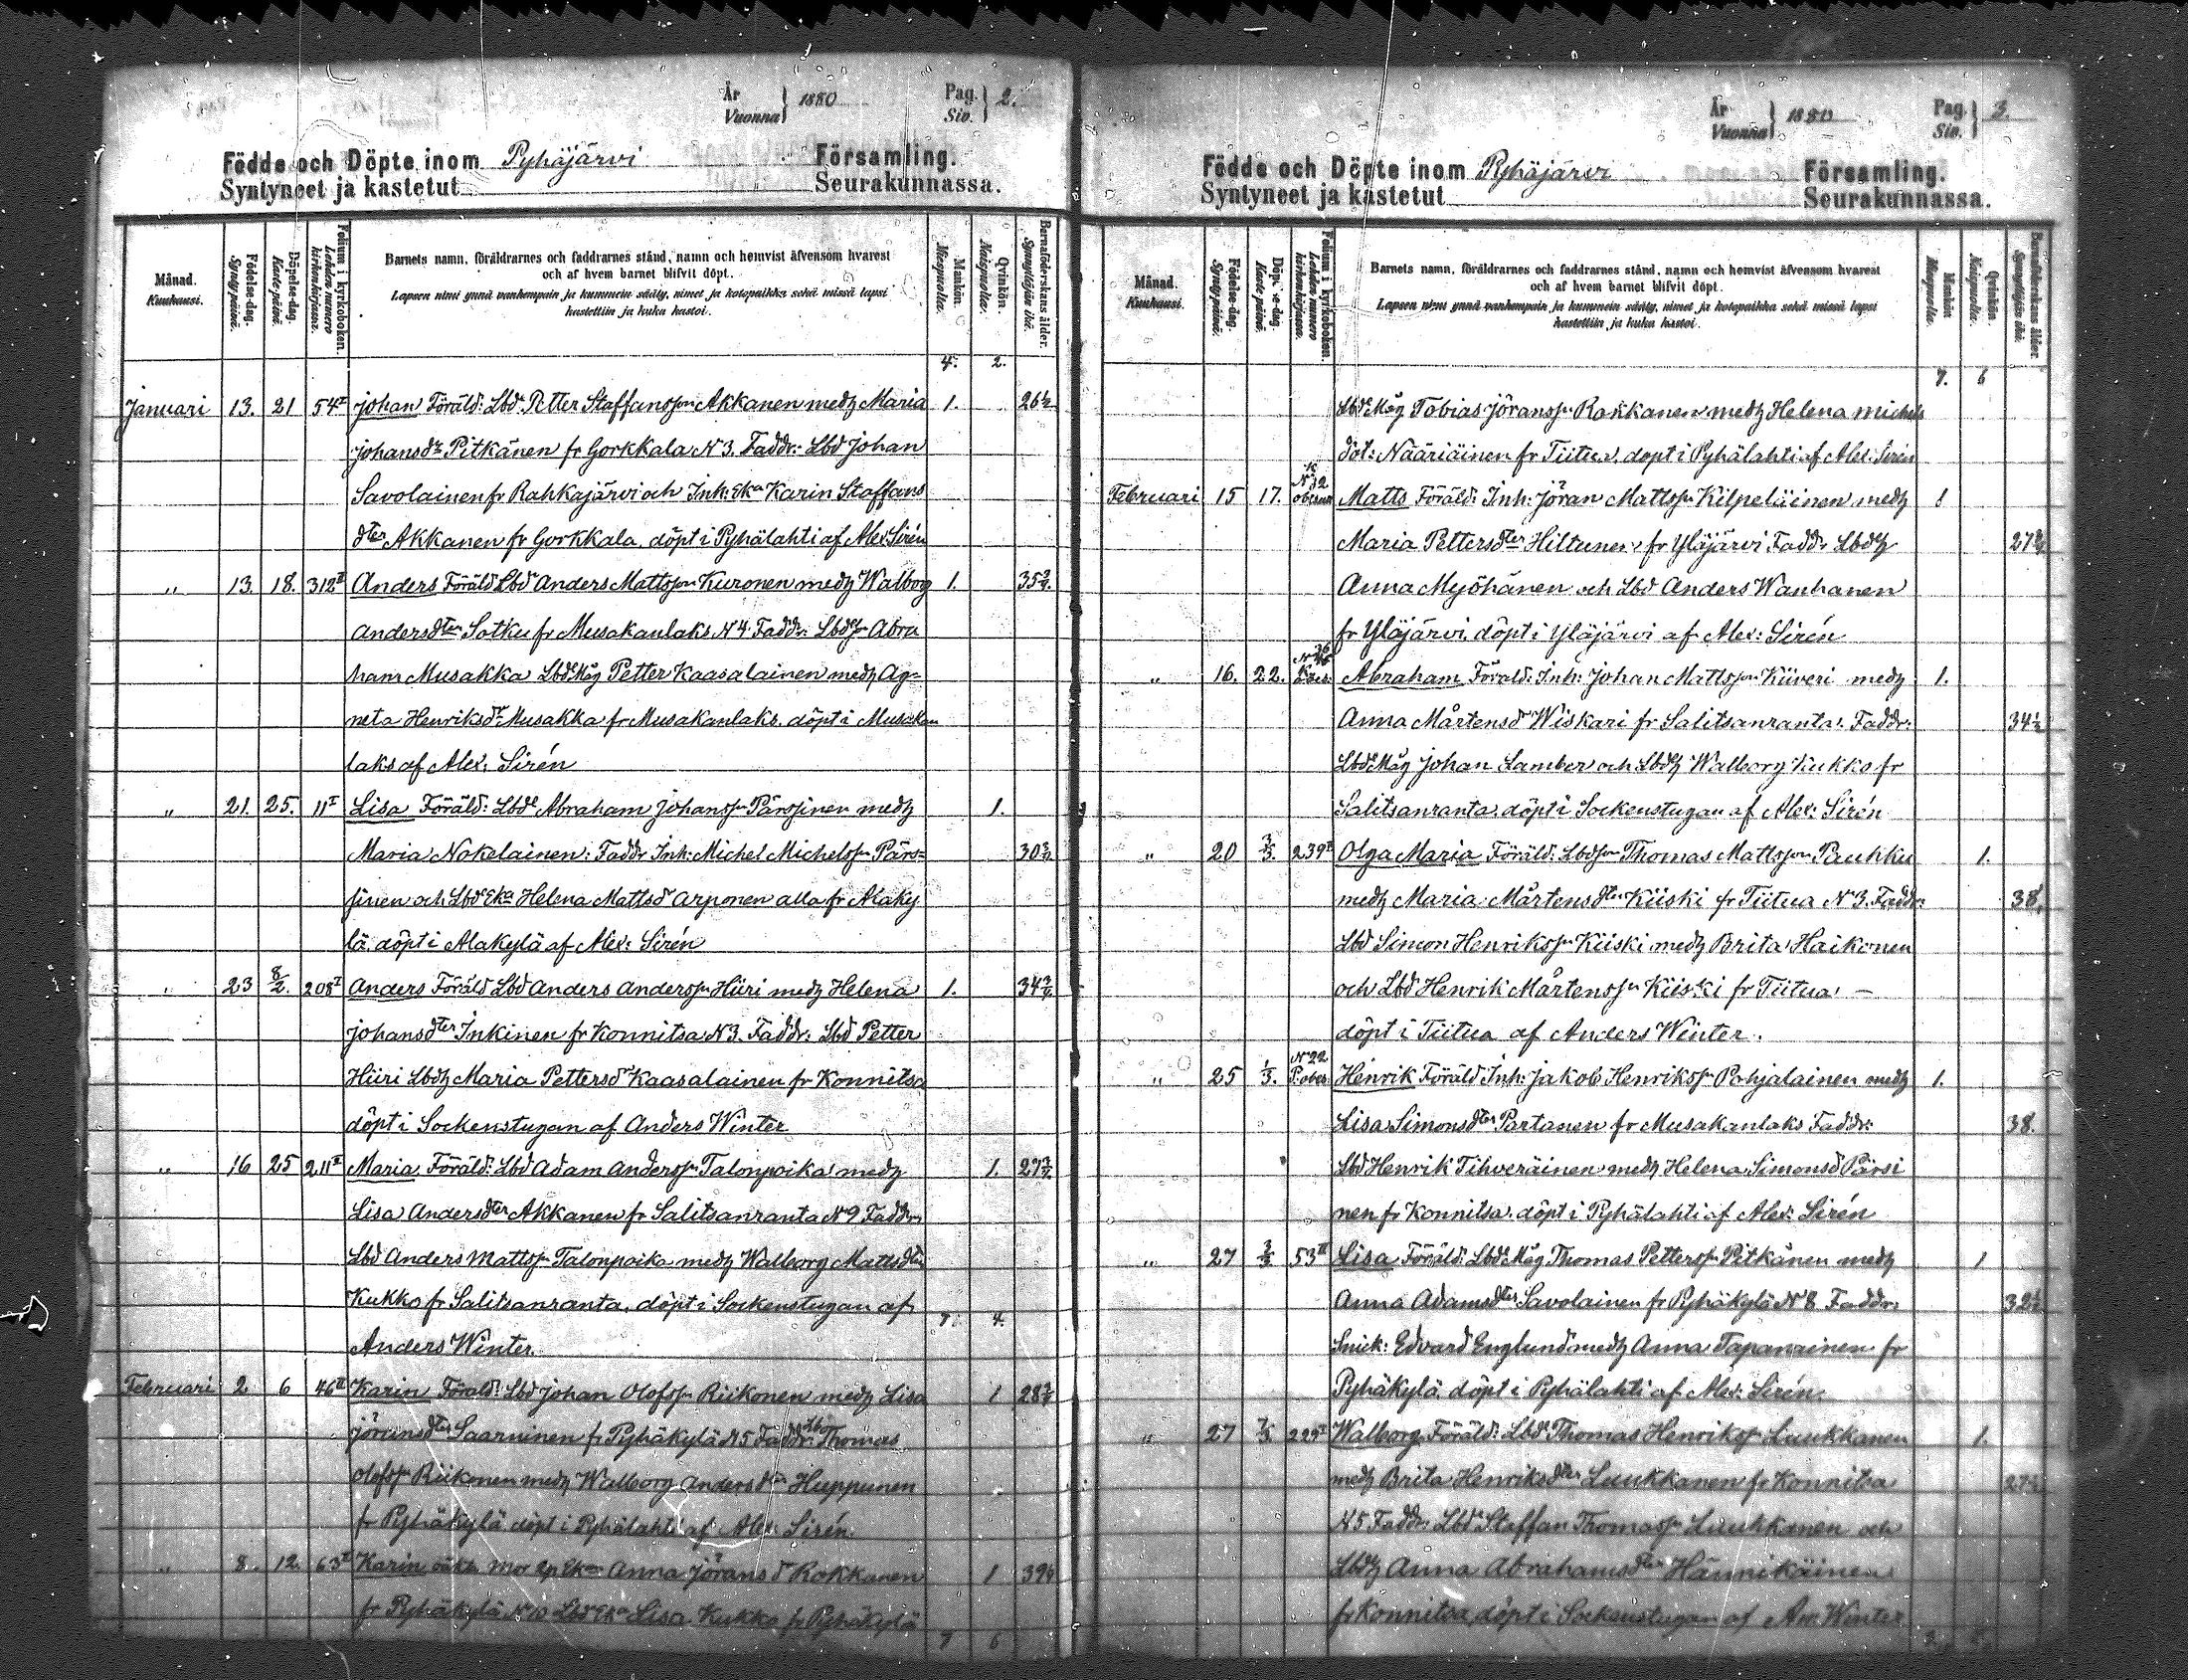 År
Vuonna } 1880 Pag.
Siv. } 2.
Födde och Döpte inom Pyhäjärvi Församling.
Syntyneet ja kastetut Seurakunnassa.
Månad.
Kuukausi.
Födelse-dag.
Syntypäivä.
Döpelse-dag.
Kastepäivä.
Folium i kyrkoboken.
Lehden numero kirkonkirjassa.
Barnets namn, föräldrarnes och faddrarnes stånd, namn och hemvist äfvensom hvarest
och af hvem barnet blifvit döpt.
Lapsen nimi ynnä vanhempain ja kummein sääty, nimet ja kotopaikka sekä missä lapsi
kastettiin ja kuka kastoi.
Mankön.
Miespuolta.
Qvinkön.
Naispuolta.
Barnaföderskans ålder.
Synnyttäjän ikä.
4. 2.
Januari 13. 21 54 I Johan Föräld: Lbd Petter Staffansson Akkanen med h Maria 1. 26 1/2
Johansdr Pitkänen fr Gorkkala N 3. Faddr: Lbd Johan
Savolainen fr Rahkajärvi och Inh: Eka Karin Staffans
dter Akkanen fr Gorkkala. döpt i Pyhälahti af Alex: Sirén
" 13. 18. 312 II Anders Föräld Lbd Anders Mattsson Kuronen med h Walborg 1. 35
Andersdter Sotku fr Musakanlaks N 4. Faddr: Abra
ham Musakka Lbds Måg Petter Kaasalainen med h Ag-
neta Henriksdr Musakka fr Musakanlaks. döpt i Musakan
laks af Alex: Sirén
" 21. 25. 11 I Lisa Föräld: Lbd Abraham Johansson Pärssinen med h 1.
Maria Nokelainen: Faddr Inh: Michel Michelsson Pärs-
sinen och Lbds Eka Helena Mattsd Arponen alla fr Alaky 30
lä. döpt i Alakylä af Alex: Sirén
" 23 8/2. 208 I Anders Föräld Lbd Anders Andersson Hiiri med h Helena 1. 34
Johansdter Inkinen fr Konnitsa N 3. Faddr: Lbd Petter
Hiiri Lbdh Maria Pettersd Kaasalainen fr Konnitsa
döpt i Sockenstugan af Anders Winter
" 16 25 211 I Maria Föräld: Lbd Adam Andersson Talonpoika med h 1. 27
Lisa Andersdter Akkanen fr Salitsanranta N 9 Faddr
Lbd Anders Mattsson Talonpoika med h Walborg Mattsdter
Kukko fr Salitsanranta. döpt i Sockenstugan af
Anders Winter. 7. 4.
Februari 2 6 46 II Karin Föräld: Lbd Johan Olofsson Riikonen med h Lisa 1 28
Jöransdter Saarninen fr Pyhäkylä N 5 Faddr: Lbd Thomas
Olofsson Riikonen med h Walborg Andersdter Huppunen
fr Pyhäkylä döpt i Pyhälahti af Alex: Sirén.
" 8. 12. 63 I Karin oäkta Mor Anna Jöransd Rokkanen 1 39
fr Pyhäkylä N 10 Lbds Eka Lisa Kukko fr Pyhäkylä
7 6
År
Vuonna } 1880 Pag.
Siv. } 3.
Födde och Döpte inom Pyhäjärvi Församling.
Syntyneet ja kastetut Seurakunnassa.
Månad.
Kuukausi.
Födelse-dag.
Syntypäivä.
Döpelse-dag.
Kastepäivä.
Folium i kyrkoboken.
Lehden numero kirkonkirjassa.
Barnets namn, föräldrarnes och faddrarnes stånd, namn och hemvist äfvensom hvarest
och af hvem barnet blifvit döpt.
Lapsen nimi ynnä vanhempain ja kummein sääty, nimet ja kotopaikka sekä missä lapsi
kastettiin ja kuka kastoi.
Mankön
Miespuolta.
Qvinkön.
Naispuolta.
Barnaföderskans ålder.
Synnyttäjän ikä.
7. 6
Lbds Måg Tobias Jöransson Rokkanen med h Helena Michels
dot: Nääriäinen fr Tiitua. döpt i Pyhälahti af Alex: Sirén
Februari 15 17. N 32 Matts Föräld: Inh: Jöran Mattsson Kilpeläinen med h 1
Maria Pettersdter Hiltunen fr Yläjärvi Faddr Lbdh 27
Anna Myöhänen och Lbd Anders Wanhanen
fr Yläjärvi döpt i Yläjärvi af Alex: Sirén
" 16. 22. Abraham Föräld: Inh: Johan Mattsson Kiiveri med h 1.
Anna Mårtensd Wiskari fr Salitsanranta. Faddr: 34 1/2
Lbds Måg Johan Lamber och Lbdh Walborg Kukko fr
Salitsanranta. döpt i Sockenstugan af Alex: Sirén
" 20 3/3. 239 II Olga Maria Föräld: Lbdson Thomas Mattsson Paukku 1.
med h Maria Mårtensdter Kiiski fr Tiitua N 3. Faddr: 38
Lbd Simon Henriksson Kiiski med h Brita Haikonen
och Lbd Henrik Mårtensson Kiiski fr Tiitua —
döpt i Tiitua af Anders Winter.
" 25 1/3. N 22 Henrik Föräld Inh: Jakob Henriksson Pohjalainen med h 1.
Lisa Simonsdter Partanen fr Musakanlaks Faddr: 38.
Lbd Henrik Tihveräinen med h Helena Simonsd Pärsi
nen fr Konnitsa. döpt i Pyhälahti af Alex: Sirén
" 27 3/3 53 II Lisa Föräld: Lbds Måg Thomas Pettersson Pitkänen med h 1
Anna Adamsdter Savolainen fr Pyhäkylä N 8 Faddr: 32 1/2
Snick: Edvard Englund med h Anna Tapanainen fr
Pyhäkylä. döpt i Pyhälahti af Alex: Sirén.
" 27 7/3 229 I Walborg Föräld: Lbd Thomas Henriksson Luukkanen 1.
med h Brita Henriksdter Luukkanen fr Konnitsa 27
N 5 Faddr: Lbd Staffan Thomasson Luukkanen och
Lbdh Anna Abrahamsdter Hännikäinen
fr Konnitsa, döpt i Sockenstugan af And Winter